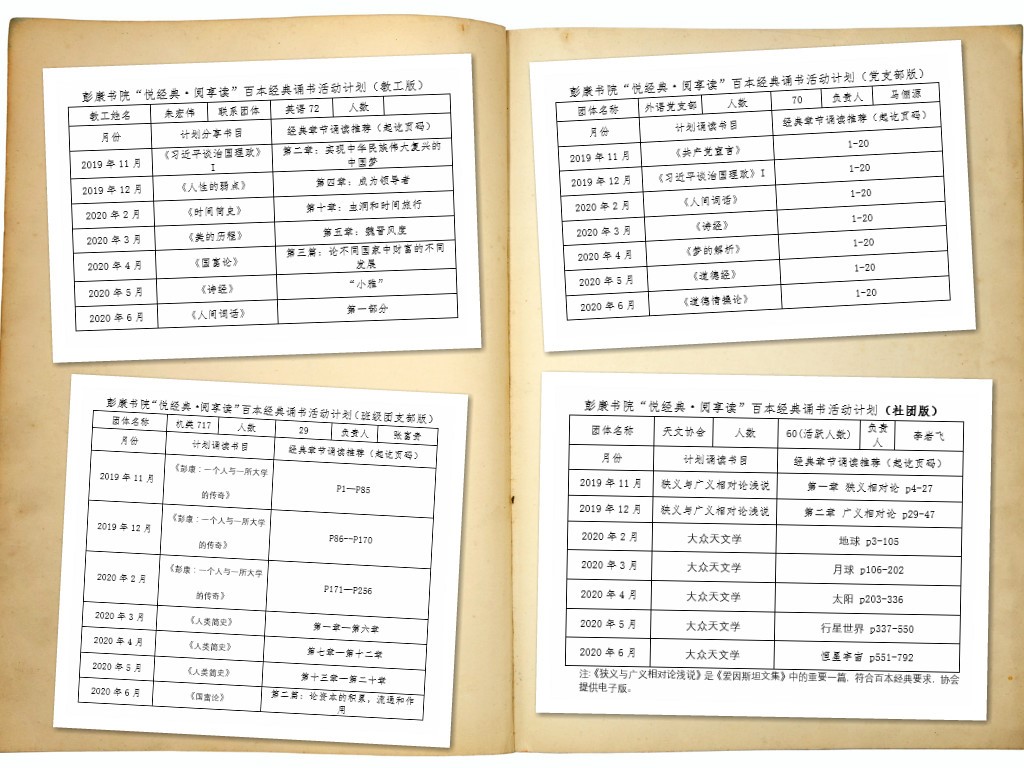 彭康书院“悦经典·阅享读”百本经典诵书活动计划（教工版）
教工姓名 朱宏伟 联系团体 英语72 人数
月份 计划分享书目 经典章节诵读推荐（起讫页码）
2019年11月 《习近平谈治国理政》I 第二章：实现中华民族伟大复兴的中国梦
2019年12月 《人性的弱点》 第四章：成为领导者
2020年2月 《时间简史》 第十章：虫洞和时间旅行
2020年3月 《美的历程》 第五章：魏晋风度
2020年4月 《国富论》 第三篇：论不同国家中财富的不同发展
2020年5月 《诗经》 “小雅”
2020年6月 《人间词话》 第一部分
彭康书院“悦经典·阅享读”百本经典诵书活动计划（党支部版）
团体名称 外语党支部 人数 70 负责人 马俪源
月份 计划诵读书目 经典章节诵读推荐（起讫页码）
2019年11月 《共产党宣言》 1-20
2019年12月 《习近平谈治国理政》I 1-20
2020年2月 《人间词话》 1-20
2020年3月 《诗经》 1-20
2020年4月 《梦的解析》 1-20
2020年5月 《道德经》 1-20
2020年6月 《道德情操论》 1-20
彭康书院“悦经典·阅享读”百本经典诵书活动计划（班级团支部版）
团体名称 机类717 人数 29 负责人
月份 计划诵读书目 经典章节诵读推荐（起讫页码）
2019年11月 《彭康：一个人与一所大学的传奇》 P1—P85
2019年12月 《彭康：一个人与一所大学的传奇》 P86—P170
2020年2月 《彭康：一个人与一所大学的传奇》 P171—P256
2020年3月 《人类简史》 第一章—第六章
2020年4月 《人类简史》 第七章—第十二章
2020年5月 《人类简史》 第十三章—第二十章
2020年6月 《国富论》 第二篇：论资本的积累，流通和作用
彭康书院“悦经典·阅享读”百本经典诵书活动计划（社团版）
团体名称 天文协会 人数 60(活跃人数) 负责人 李岩飞
月份 计划诵读书目 经典章节诵读推荐（起讫页码）
2019年11月 狭义与广义相对论浅说 第一章 狭义相对论 p4-27
2019年12月 狭义与广义相对论浅说 第二章 广义相对论 p29-47
2020年2月 大众天文学 地球 p3-105
2020年3月 大众天文学 月球 p106-202
2020年4月 大众天文学 太阳 p203-336
2020年5月 大众天文学 行星世界 p337-550
2020年6月 大众天文学 恒星宇宙 p551-792
注:《狭义与广义相对论浅说》是《爱因斯坦文集》中的重要一篇，符合百本经典要求，协会
提供电子版。